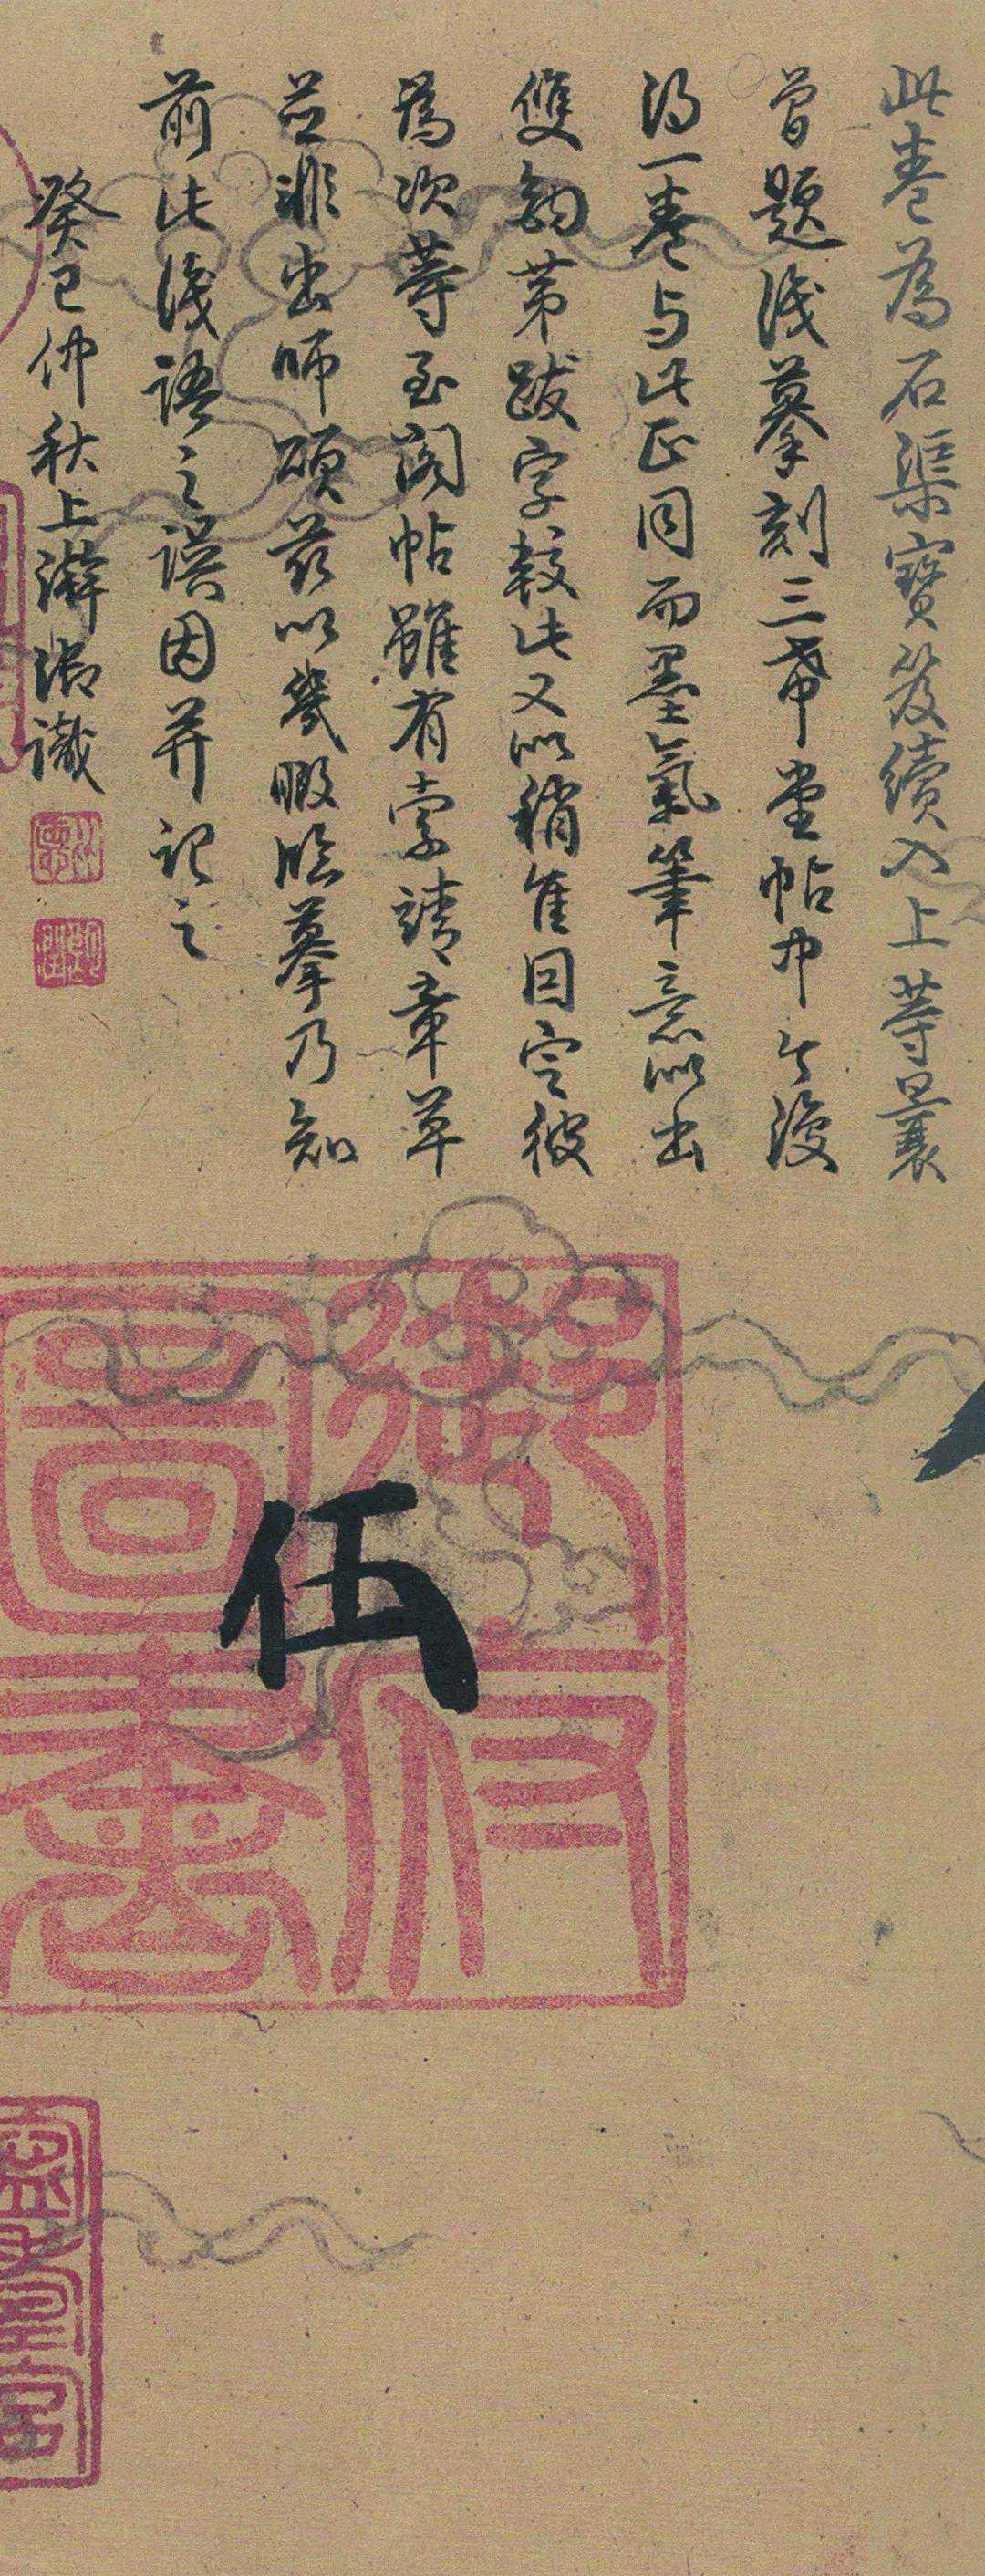 此卷為石渠寶笈續入上等曩
曾題識摹刻三希堂帖中今復
得一卷与此正同而墨氣筆意似出
雙鉤第跋字較此又似稍佳因定彼
為次等至閣帖雖有索靖章草
並非出師頌茲以幾暇臨摹乃知
前此識語之誤因并記之
癸巳仲秋上澣御識
伍